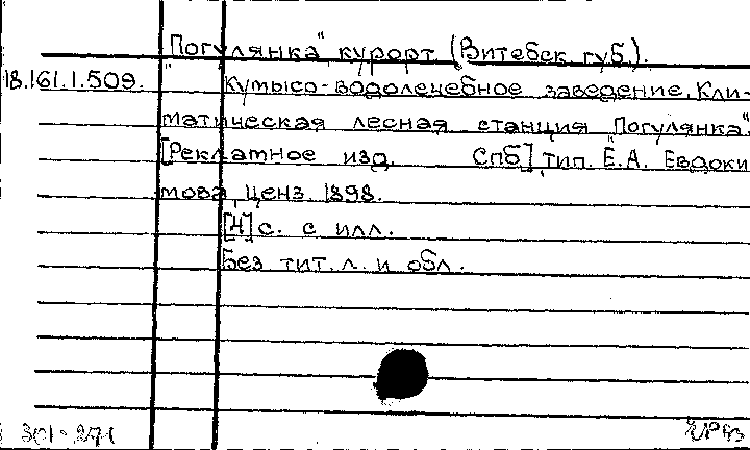 "Погулянка", курорт (Витебск. губ.).
18.161.1.509.
Кумысо-водолечебное заведение. Кли-
матическая лесная станция "Погулянка".
[Рекламное изд. СПб] тип. Е.А. Евдоки
мова, ценз. 1898.
[4] с. с илл.
Без тит. л. и обл.
301-271